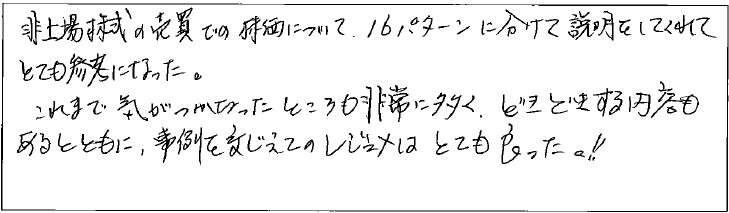 非上場株式の売買での株価について、16パターンに分けて説明をしてくれて
とても参考になった。
これまで気がつかなかったところも非常に多く、ドキドキする内容も
あるとともに、事例を交じえてのレジュメはとても良かった。!!